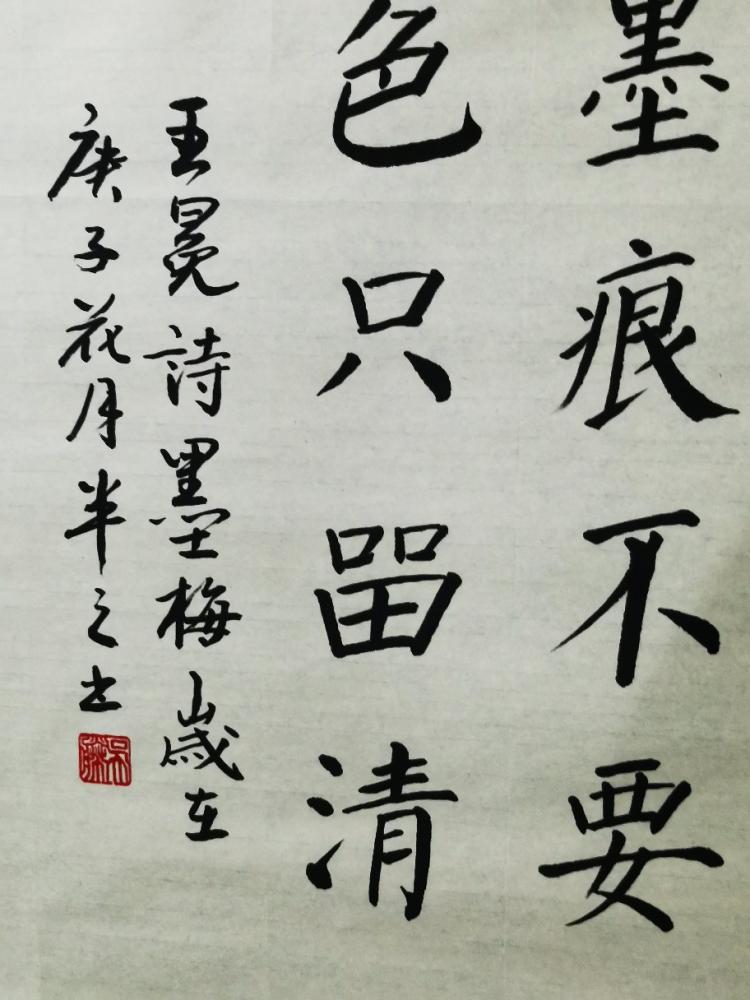 墨痕不要
色只畱清
王冕詩墨梅歲在
庚子花月半之